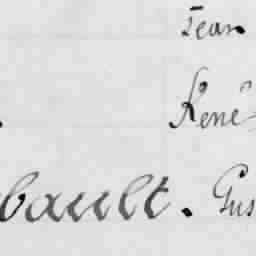 Jean
René
bault. Gus